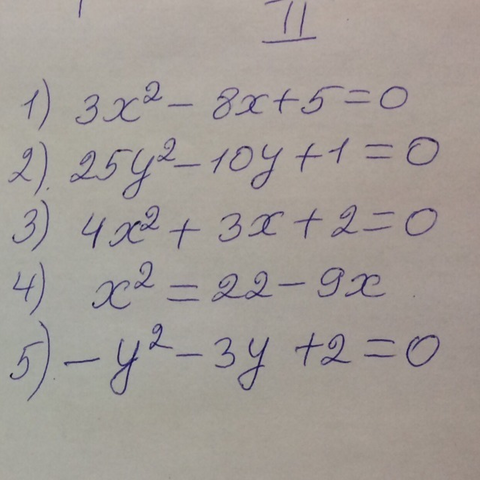 II
1) 3x² - 8x + 5 = 0
2) 25y² - 10y + 1 = 0
3) 4x² + 3x + 2 = 0
4) x² = 22 - 9x
5) -y² - 3y + 2 = 0